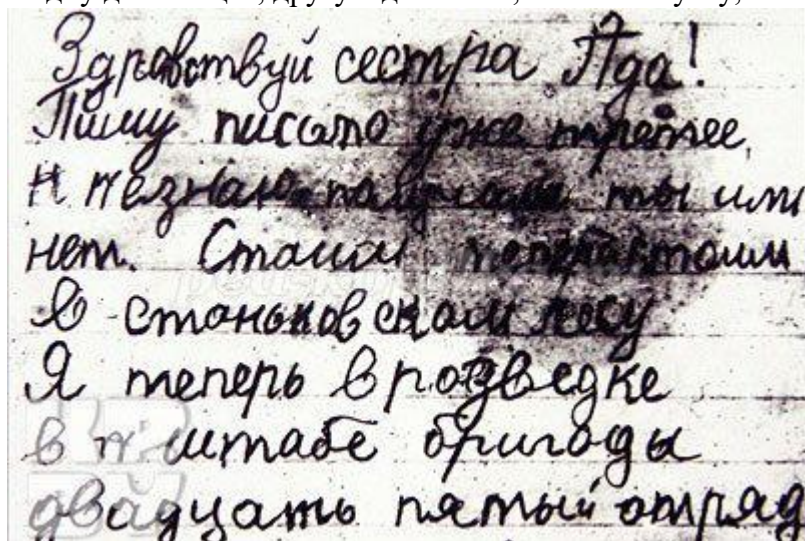 Здравствуй сестра Ада!
Пишу писмо уже третее,
и незнаю получила ты или
нет. Стоим теперь стоим
в станьковском лесу
Я теперь в розведке
в штабе бригады
двадцать пятый отряд